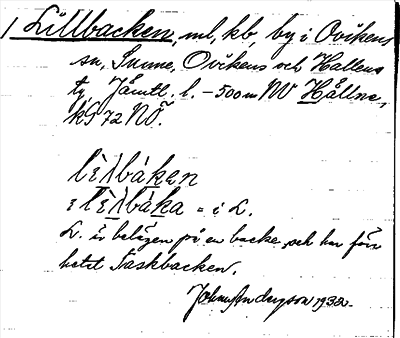 1 Lillbacken, ml, kb, by i Ovikens
sn, Sunne, Ovikens och Hallens
tg, Jämtl. l. – 500 m NV Hållne,
kG 72 NÖ.
lìλbáken
i lìλbáka = i L.
L. är belägen på en backe och har förr
hetat Taskbacken.
Johnny Andersson 1932.